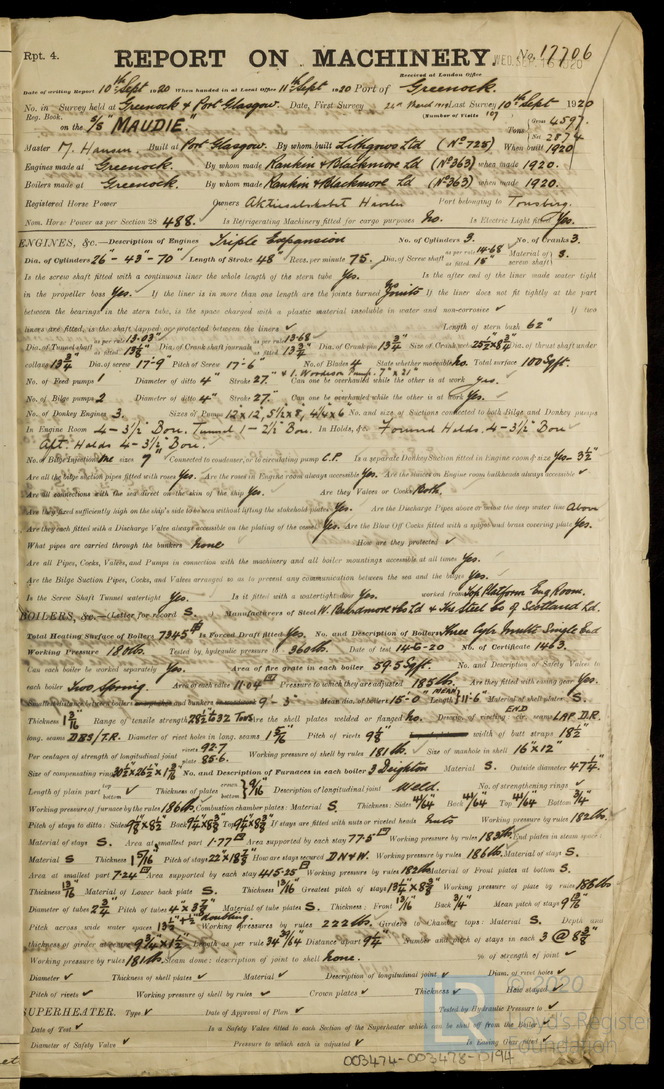 Rpt. 4.
REPORT ON MACHINERY.
No. 17706
WED. SEP. 15 1920
Received at London Office
Date of writing Report 10th Sept 1920 When handed in at Local Office 11th Sept 1920 Port of Greenock.
No. in Survey held at Greenock & Port Glasgow. Date, First Survey Last Survey 10th Sept 1920
Reg. Book.
(Number of Visits
on the S/S "MAUDIE"
Tons Gross 4597
Net 2874
Master M. Hansen. Built at Port Glasgow. By whom built Lithgows Ltd (No 725) When built 1920
Engines made at Greenock. By whom made Rankin & Blackmore Ld (No 363) when made 1920.
Boilers made at Greenock. By whom made Rankin & Blackmore Ld (No 363) when made 1920.
Registered Horse Power Owners Port belonging to Tonsberg.
Nom. Horse Power as per Section 28 488. Is Refrigerating Machinery fitted for cargo purposes No. Is Electric Light fitted Yes.
ENGINES, &c.—Description of Engines Triple Expansion No. of Cylinders 3. No. of Cranks 3.
Dia. of Cylinders 26"-43"-70" Length of Stroke 48" Revs. per minute 75. Dia. of Screw shaft as per rule 14.68 as fitted 15" Material of screw shaft S.
Is the screw shaft fitted with a continuous liner the whole length of the stern tube Yes. Is the after end of the liner made water tight
in the propeller boss Yes. If the liner is in more than one length are the joints burned No joints If the liner does not fit tightly at the part
between the bearings in the stern tube, is the space charged with a plastic material insoluble in water and non-corrosive ✓ If two
liners are fitted, is the shaft lapped or protected between the liners ✓ Length of stern bush 62"
Dia. of Tunnel shaft as per rule 13.03" as fitted Dia. of Crank shaft journals as per rule 13.68 as fitted 13 3/4" Dia. of Crank pin 13 3/4" Size of Crank webs Dia. of thrust shaft under
collars 13 3/4" Dia. of screw 17'-9" Pitch of Screw 17'-6" No. of Blades 4 State whether moveable No. Total surface 100 Sqft.
No. of Feed pumps 1 Diameter of ditto 4" Stroke 27" Can one be overhauled while the other is at work Yes.
& 1. Woodeson Pump. 7" x 21"
No. of Bilge pumps 2 Diameter of ditto 4" Stroke 27" Can one be overhauled while the other is at work Yes.
No. of Donkey Engines 3. Sizes of Pumps No. and size of Suctions connected to both Bilge and Donkey pumps
In Engine Room 4-3 1/2" Bow. Tunnel 1-2 1/2" Bow. In Holds, &c. Forward Holds. 4-3 1/2" Bow
Aft. Holds 4-3 1/2" Bow.
No. of Bilge Injections One sizes 9" Connected to condenser, or to circulating pump C.P. Is a separate Donkey Suction fitted in Engine room & size Yes-3 1/2"
Are all the bilge suction pipes fitted with roses Yes. Are the roses in Engine room always accessible Yes. Are the sluices on Engine room bulkheads always accessible ✓
Are all connections with the sea direct on the skin of the ship Yes. Are they Valves or Cocks Both.
Are they fixed sufficiently high on the ship's side to be seen without lifting the stokehold plates Yes. Are the Discharge Pipes above or below the deep water line Above
Are they each fitted with a Discharge Valve always accessible on the plating of the vessel Yes. Are the Blow Off Cocks fitted with a spigot and brass covering plate Yes.
What pipes are carried through the bunkers None How are they protected ✓
Are all Pipes, Cocks, Valves, and Pumps in connection with the machinery and all boiler mountings accessible at all times Yes.
Are the Bilge Suction Pipes, Cocks, and Valves arranged so as to prevent any communication between the sea and the bilges Yes.
Is the Screw Shaft Tunnel watertight Yes. Is it fitted with a watertight door Yes. worked from Top Platform Eng Room.
BOILERS, &c.—(Letter for record S. Manufacturers of Steel W. Beardmore & Co Ld & The Steel Co of Scotland Ld.
Total Heating Surface of Boilers 7345 Is Forced Draft fitted Yes. No. and Description of Boilers Three Cyls Multi Single End
Working Pressure 180 lbs. Tested by hydraulic pressure to 360 lbs. Date of test 14-6-20 No. of Certificate 1463.
Can each boiler be worked separately Yes. Area of fire grate in each boiler 59.5 Sqft. No. and Description of Safety Valves to
each boiler Two, Spring. Area of each valve 11.04 Pressure to which they are adjusted 185 lbs. Are they fitted with easing gear Yes.
Smallest distance between boilers and bunkers 9'-3 Mean dia. of boilers 15'-0" Length MEAN 11'-6 Material of shell plates S.
Thickness Range of tensile strength 28 1/2 & 32 Tons Are the shell plates welded or flanged No. Descrip. of riveting: cir. seams END LAP D.R.
long. seams DBS/T.R. Diameter of rivet holes in long. seams Pitch of rivets width of butt straps 18 1/2"
Per centages of strength of longitudinal joint rivets 92.7 plate 85.6. Working pressure of shell by rules 181 lbs Size of manhole in shell 16"x12"
Size of compensating ring No. and Description of Furnaces in each boiler 3 Deighton Material S. Outside diameter 47 1/4"
Length of plain part top bottom ✓ Thickness of plates crown bottom 9/16 Description of longitudinal joint Weld. No. of strengthening rings ✓
Working pressure of furnace by the rules 186 lbs. Combustion chamber plates: Material S Thickness: Sides 41/64 Back 41/64 Top 41/64 Bottom 3/4"
Pitch of stays to ditto: Sides Back Top If stays are fitted with nuts or riveted heads Nuts Working pressure by rules 182 lbs.
Material of stays S. Area at smallest part 1.77 Area supported by each stay 77.5 Working pressure by rules 183 lbs. End plates in steam space:
Material S Thickness Pitch of stays How are stays secured D N & W. Working pressure by rules 186 lbs. Material of stays S.
Area at smallest part 7.24 Area supported by each stay 415.25 Working pressure by rules 182 lbs Material of Front plates at bottom S.
Thickness 13/16 Material of Lower back plate S. Thickness 13/16 Greatest pitch of stays Working pressure of plate by rules 188 lbs
Diameter of tubes 2 3/4" Pitch of tubes Material of tube plates S. Thickness: Front 13/16 Back 3/4" Mean pitch of stays
Pitch across wide water spaces doubling. Working pressures by rules 222 lbs. Girders to Chamber tops: Material S. Depth and
thickness of girder at centre Length as per rule Distance apart 9 1/4" Number and pitch of stays in each 3 @ 8 3/8"
Working pressure by rules 181 lbs. Steam dome: description of joint to shell None. % of strength of joint ✓
Diameter ✓ Thickness of shell plates ✓ Material ✓ Description of longitudinal joint ✓ Diam. of rivet holes ✓
Pitch of rivets ✓ Working pressure of shell by rules ✓ Crown plates ✓ Thickness ✓ How stayed ✓
SUPERHEATER. Type ✓ Date of Approval of Plan ✓ Tested by Hydraulic Pressure to ✓
Date of Test ✓ Is a Safety Valve fitted to each Section of the Superheater which can be shut off from the Boiler ✓
Diameter of Safety Valve ✓ Pressure to which each is adjusted ✓ Is Easing Gear fitted ✓
003474-003478-0194
© 2020
Lloyd's Register
Foundation